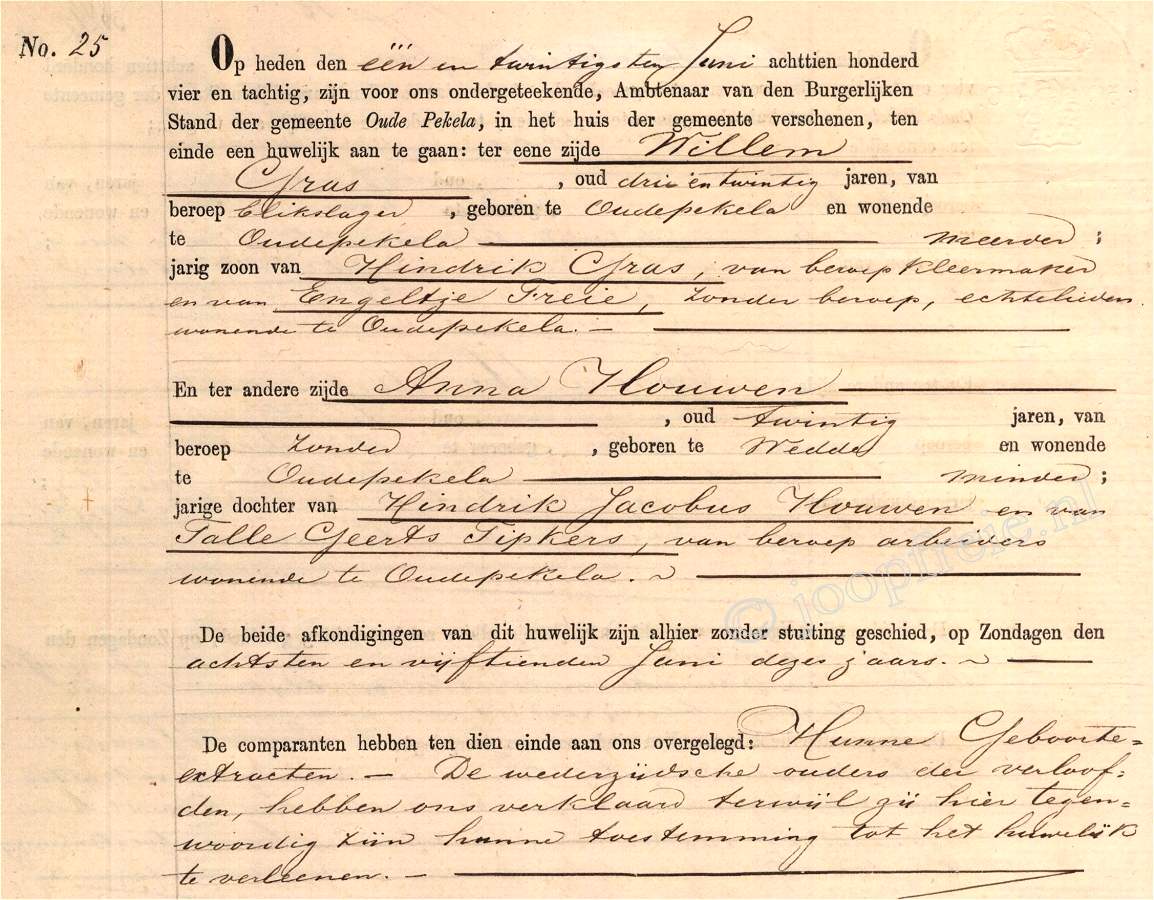 No. 25
Op heden den één en twintigsten Juni achttien honderd
vier en tachtig, zijn voor ons ondergeteekende, Ambtenaar van den Burgerlijken
Stand der gemeente Oude Pekela, in het huis der gemeente verschenen, ten
einde een huwelijk aan te gaan: ter eene zijde Willem
Gras, oud drie en twintig jaren, van
beroep Blikslager, geboren te Oudepekela en wonende
te Oudepekela meerder;
jarig zoon van Hindrik Gras, van beroep kleermaker
en van Engeltje Freie, zonder beroep, echtelieden
wonende te Oudepekela. –
En ter andere zijde Anna Houwen
, oud twintig jaren, van
beroep zonder, geboren te Wedde en wonende
te Oudepekela minder;
jarige dochter van Hindrik Jacobus Houwen en van
Talle Geerts Tipkers, van beroep arbeiders
wonende te Oudepekela. ~
De beide afkondigingen van dit huwelijk zijn alhier zonder stuiting geschied, op Zondagen den
achtsten en vijftienden Juni dezes jaars. ~
De comparanten hebben ten dien einde aan ons overgelegd: Hunne Geboorte=
extracten. – De wederzijdsche ouders der verloof=
den, hebben ons verklaard terwijl zij hier tegen=
woordig zijn hunne toestemming tot het huwelijk
te verleenen. –
© joopfreie.nl